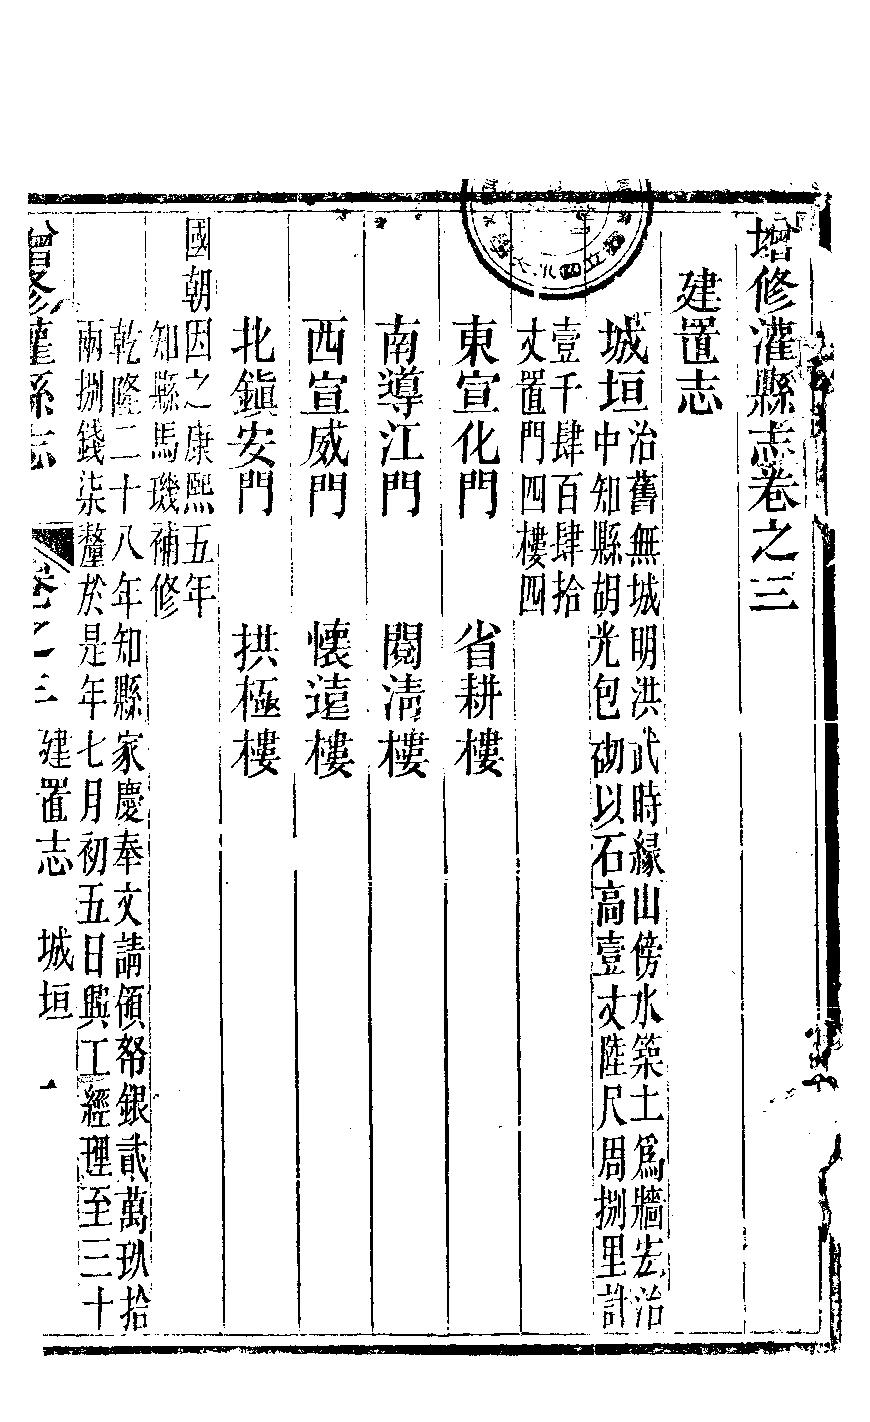 增修灌縣志卷之三
建置志
城垣
治舊無城明洪武時緣山傍水築土爲牆宏治
中知縣胡光包砌以石高壹丈陸尺周捌里計
壹千肆百肆拾
丈置門四樓四
東宣化門 省耕樓
南導江門 閱清樓
西宣威門 懷遠樓
北鎮安門 拱極樓
國朝因之康熙五年
知縣馬璣補修
乾隆二十八年知縣家慶奉文請領帑銀貳萬玖拾
兩捌錢柒釐於是年七月初五日興工經理至三十
增修灌縣志 卷之三 建置志 城垣 一